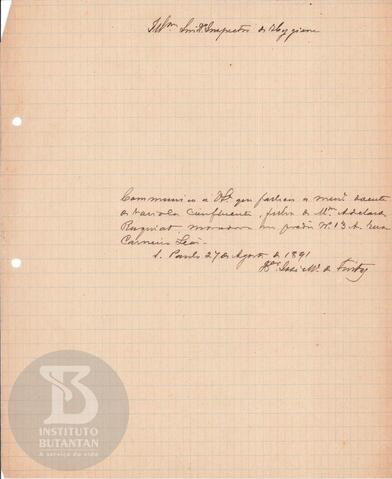 Illm Snr Dr Inspector de Hygiene
Communico a V. que falleceu a menª doente
de variola confluente, filha de Mme Adelard
moradora no predio Nº 13 A. rua
Carneiro Leão.
S. Paulo 27 de Agosto de 1891
Dr José Mª de
INSTITUTO
BUTANTAN
A serviço da vida